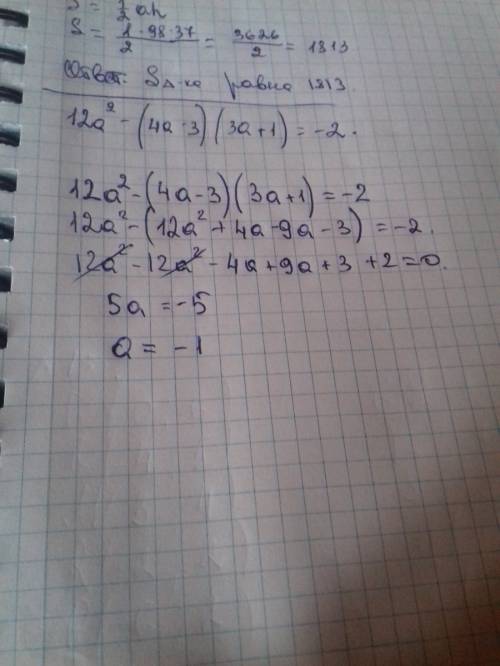 S = 1/2 ah
S = 1·98·37/2 = 3626/2 = 1813
Ответ: S△-ка равна 1813.
12a² - (4a - 3)(3a + 1) = -2.
12a² - (4a - 3)(3a + 1) = -2
12a² - (12a² + 4a - 9a - 3) = -2.
12a² - 12a² - 4a + 9a + 3 + 2 = 0.
5a = -5
a = -1